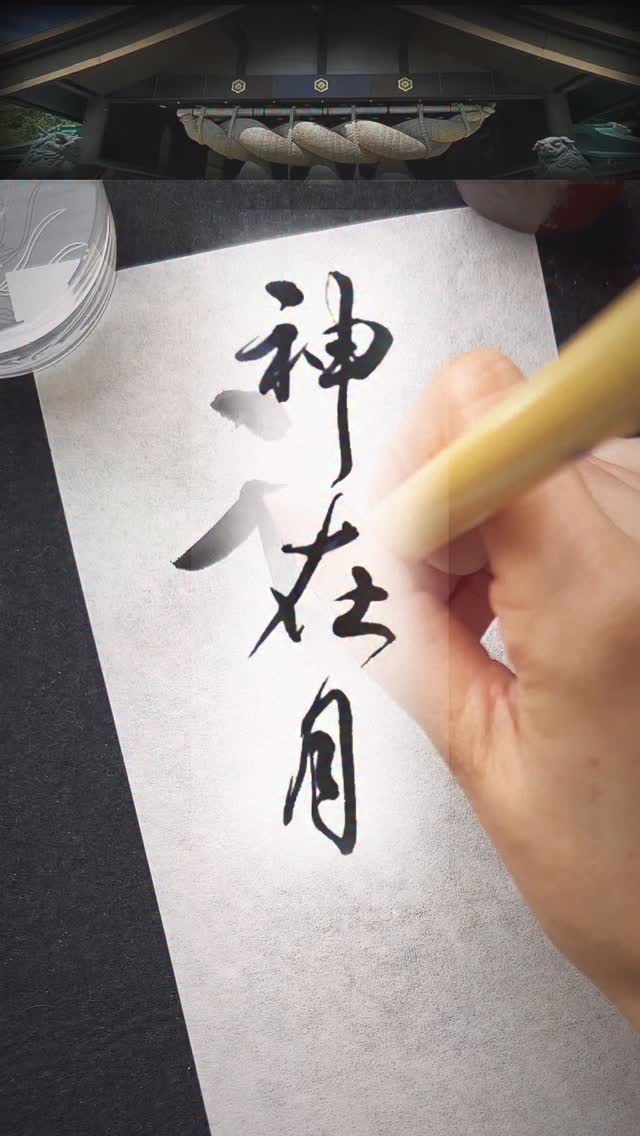 神在月